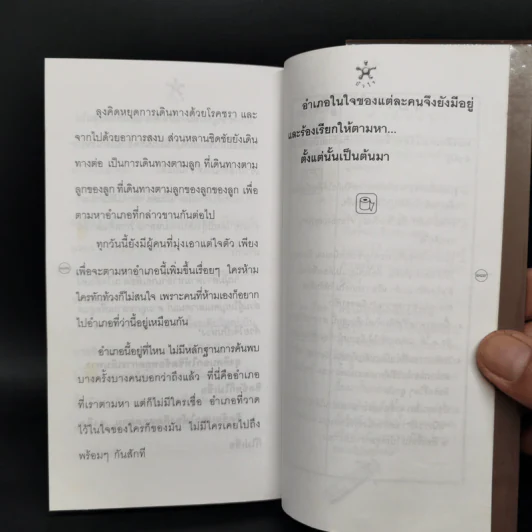 ลุงคิดหยุดการเดินทางด้วยโรคชรา และ
จากไปด้วยอาการสงบ ส่วนหลานชิดชัยยังเดิน
ทางต่อ เป็นการเดินทางตามลูก ที่เดินทางตาม
ลูกของลูก ที่เดินทางตามลูกของลูกของลูก เพื่อ
ตามหาอำเภอที่กล่าวขานกันต่อไป
ทุกวันนี้ยังมีผู้คนที่มุ่งเอาแต่ใจตัว เพียง
เพื่อจะตามหาอำเภอนี้เพิ่มขึ้นเรื่อยๆ ใครห้าม
ใครทักท้วงก็ไม่สนใจ เพราะคนที่ห้ามเองก็อยาก
ไปอำเภอที่ว่านี้อยู่เหมือนกัน
อำเภอนี้อยู่ที่ไหน ไม่มีหลักฐานการค้นพบ
บางครั้งบางคนบอกว่าถึงแล้ว ที่นี่คืออำเภอ
ที่เราตามหา แต่ก็ไม่มีใครเชื่อ อำเภอที่วาด
ไว้ในใจของใครก็ของมัน ไม่มีใครเคยไปถึง
พร้อมๆ กันสักที
อำเภอในใจของแต่ละคนจึงยังมีอยู่
และร้องเรียกให้ตามหา...
ตั้งแต่นั้นเป็นต้นมา